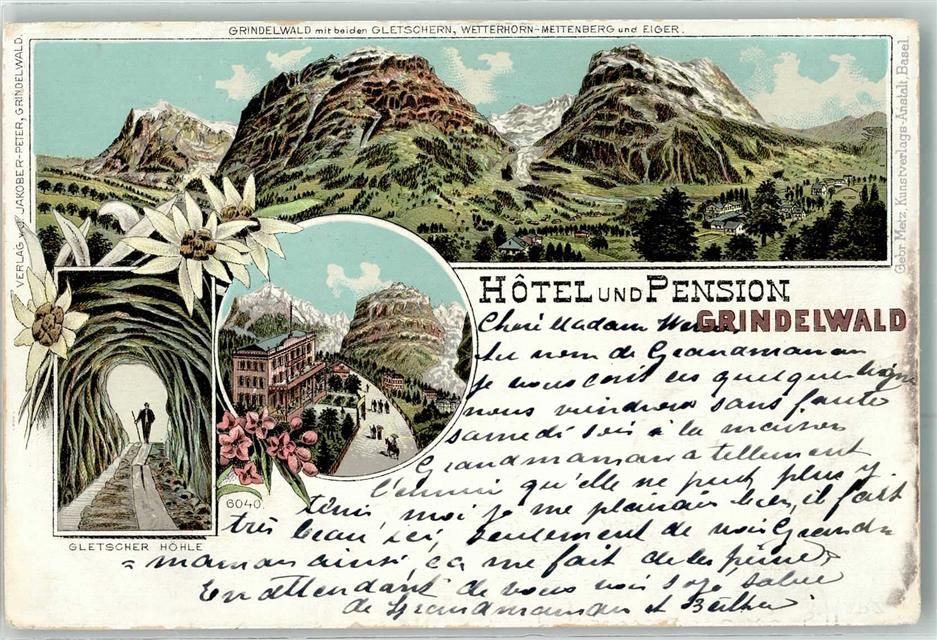 GRINDELWALD mit beiden GLETSCHERN, WETTERHORN-METTENBERG und EIGER.
VERLAG v. J. JAKOBER-PETER, GRINDELWALD.
Gebr Metz, Kunstverlags-Anstalt, Basel.
HÔTEL UND PENSION
GRINDELWALD
Cheri Madam
Au nom de Grandmaman
je vous écris ces quelques lignes
nous viendrons sans faute
samedi soir à la maison
Grandmaman a tellement
l'ennui qu'elle ne peut plus y
tenir, moi je me plairais bien, il fait
très beau ici, seulement de voir Grand=
=maman ainsi, ça me fait de la peine.
En attendant de vous voir
de Grandmaman et
6040.
GLETSCHER HÖHLE